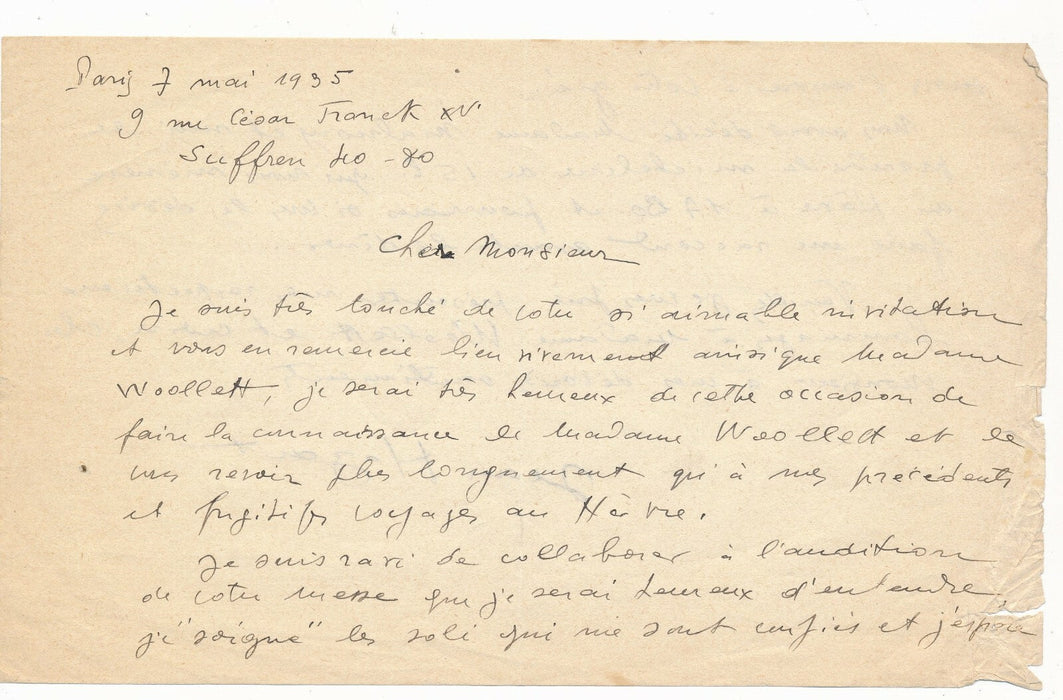 Paris 7 mai 1935
9 rue César Franck XVe
Suffren 40-80
Cher Monsieur
Je suis très touché de votre si aimable invitation
et vous en remercie bien vivement ainsi que Madame
Woollett, je serai très heureux de cette occasion de
faire la connaissance de Madame Woollett et de
vous revoir plus longuement qu'à mes précédents
et fugitifs voyages au Hâvre.
Je suis ravi de collaborer à l'audition
de votre messe que je serai heureux d'entendre,
je "soigne" les soli qui me sont confiés et j'espère